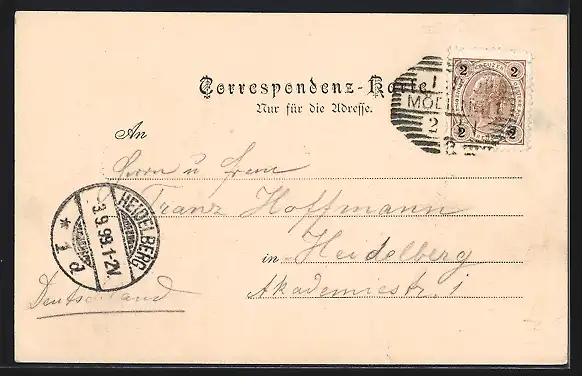 Correspondenz-Karte
Nur für die Adresse.
2 KREUZER 2
2 2
MÖD
2
An
Herrn u Frau
Franz Hoffmann
in Heidelberg
Akademiestr. 1
Deutschland
HEIDELBERG
3.9.99.1-2V.
* 1 d